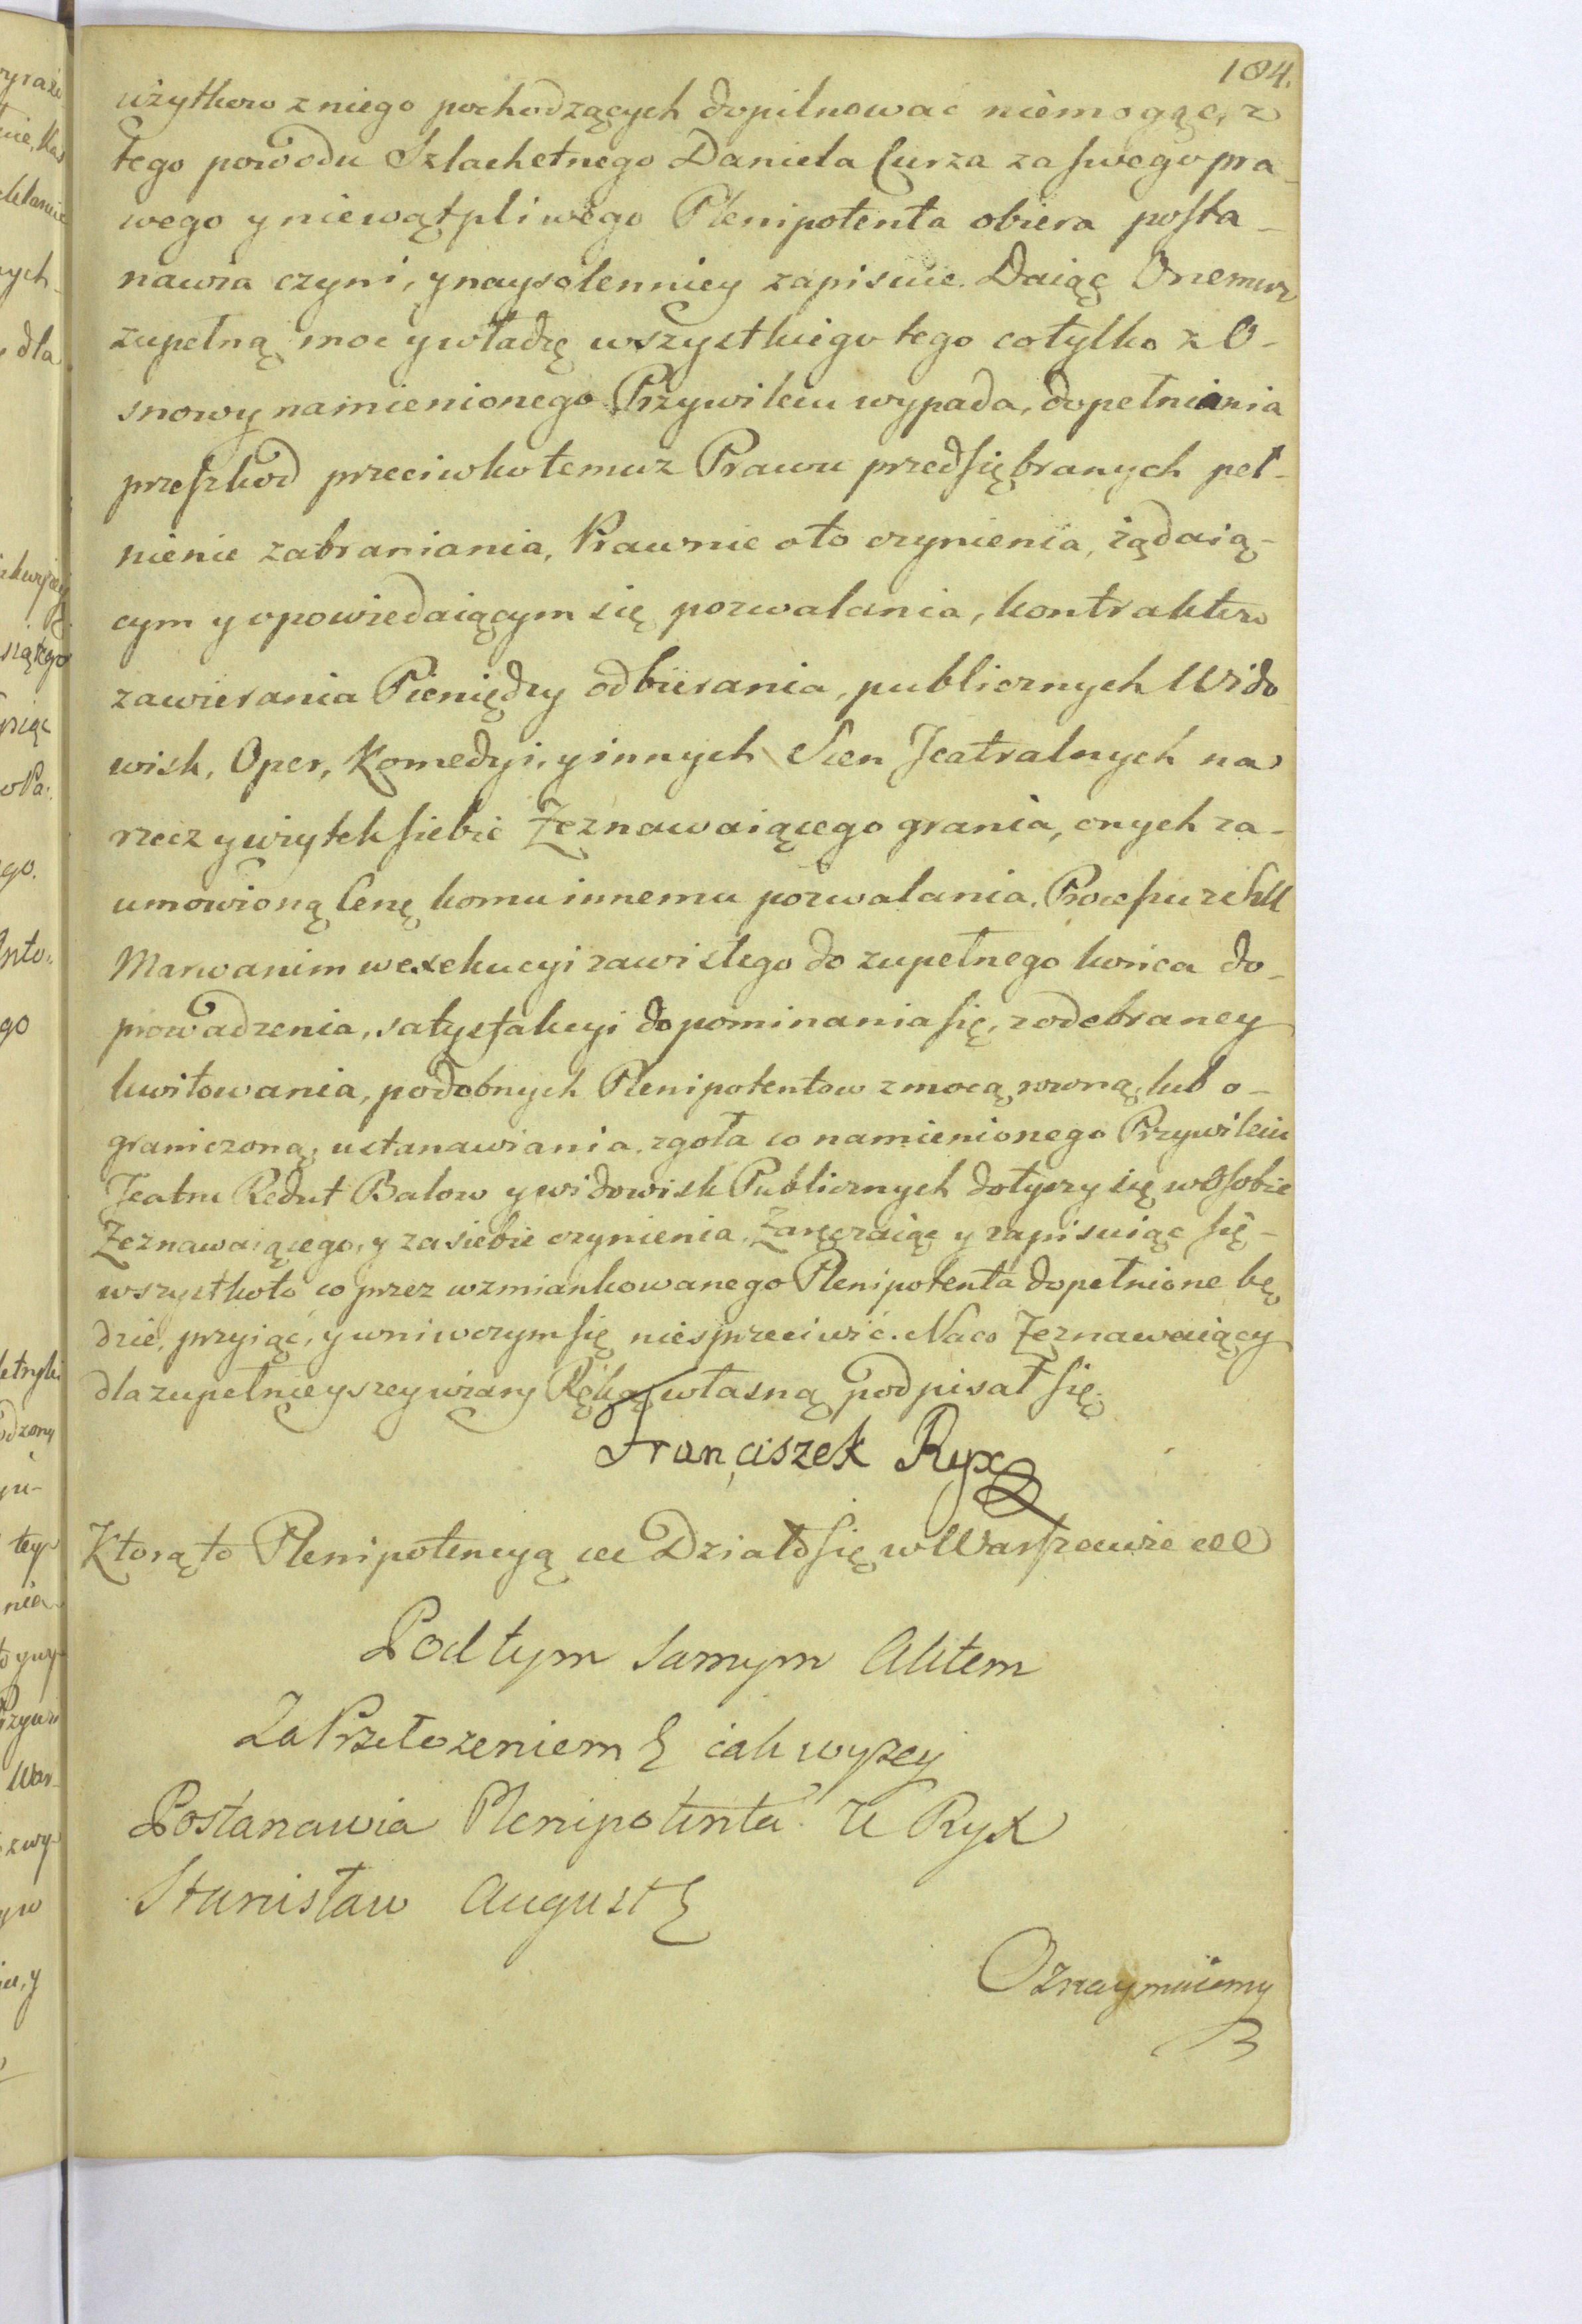 104.
użytkow z niego pochodzących dopilnować niemogąc, z
tego powodu Szlachetnego Daniela Curza za swego pra-
wego y niewątpliwego Plenipotenta obiera posta-
nawia czyni, y naysolenniey zapisuie. Daiąc Onemuz
zupełną moc y władzę wszystkiego tego co tylko z O-
snowy namienionego Przywileiu wypada, dopełniania
przeszkod przeciwko temuz Prawu przedsiębranych peł-
nienie zabraniania, Prawnie oto czynienia, żądaią-
cym y opowiedaiącym się pozwalania, kontraktow
zawierania Pieniędzy odbierania, publicznych Wido
wisk, Oper, Komedyi, y innych Scen Teatralnych na
rzecz y użytek siebie Zeznawaiącego grania, onych za-
umowioną Cenę komu innemu pozwalania, Processu z
Marwanim w exekucyi zawisłego do zupełnego końca do-
prowadzenia, satysfakcyi dopominania się, z odebraney
kwitowania, podobnych Plenipotentow z mocą rowną lub o-
graniczoną, ustanawiania, zgoła co namienionego Przywileiu
Teatru Redut Balow y widowisk Publicznych dotyczy się w Osobie
Zeznawaiącego, y za siebie czynienia, Zaręczaiąc y zapisuiąc się-
wszystko to co przez wzmiankowanego Plenipotenta dopełnione bę
dzie, przyiąć, y w niwczym się niesprzeciwić. Naco Zeznawaiący
dla zupełnieyszey wiary Ręką własną podpisał się.
Franciszek Ryx
Ktorą to Plenipotencyą &c Działo się w Warszawie &c
Pod tym Samym Aktem
Za Przełożeniem jak wyżey
Postanawia Plenipotenta Ur Ryx
Stanisław August
Oznaymuiemy